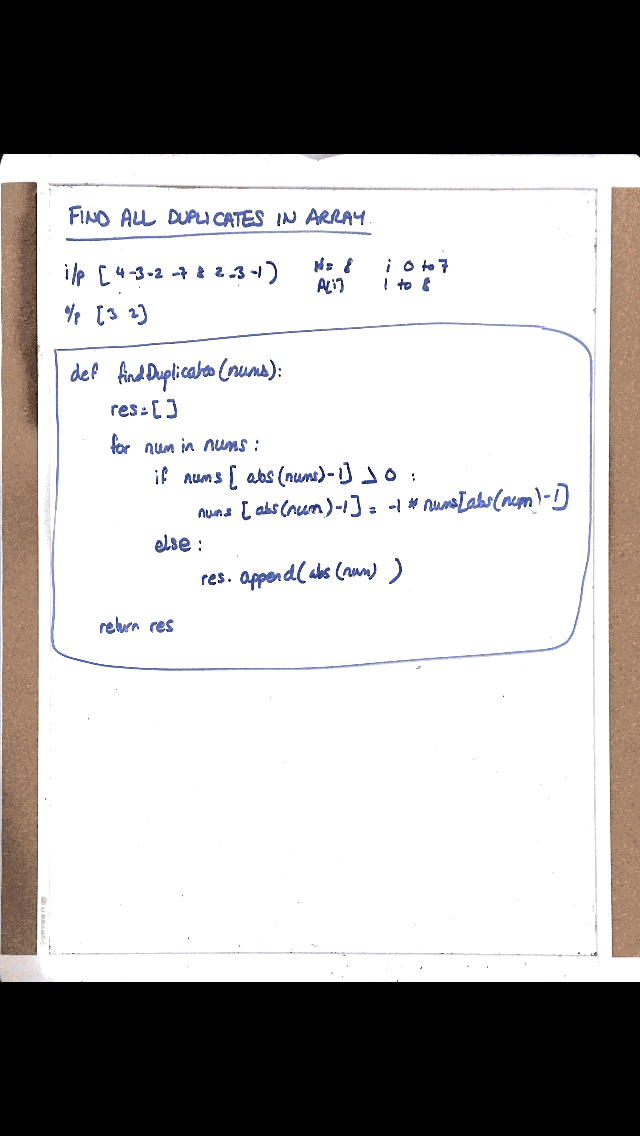 FIND ALL DUPLICATES IN ARRAY
i/p [ 4 -3 -2 -7 8 2 -3 -1 ) N= 8 i 0 to 7
A[i] 1 to 8
o/p [3 2]
def findDuplicates(nums):
res=[]
for num in nums :
if nums [ abs(nums)-1] > 0 :
nums [ abs(num)-1] = -1 * nums[abs(num)-1]
else :
res. append( abs (num) )
return res